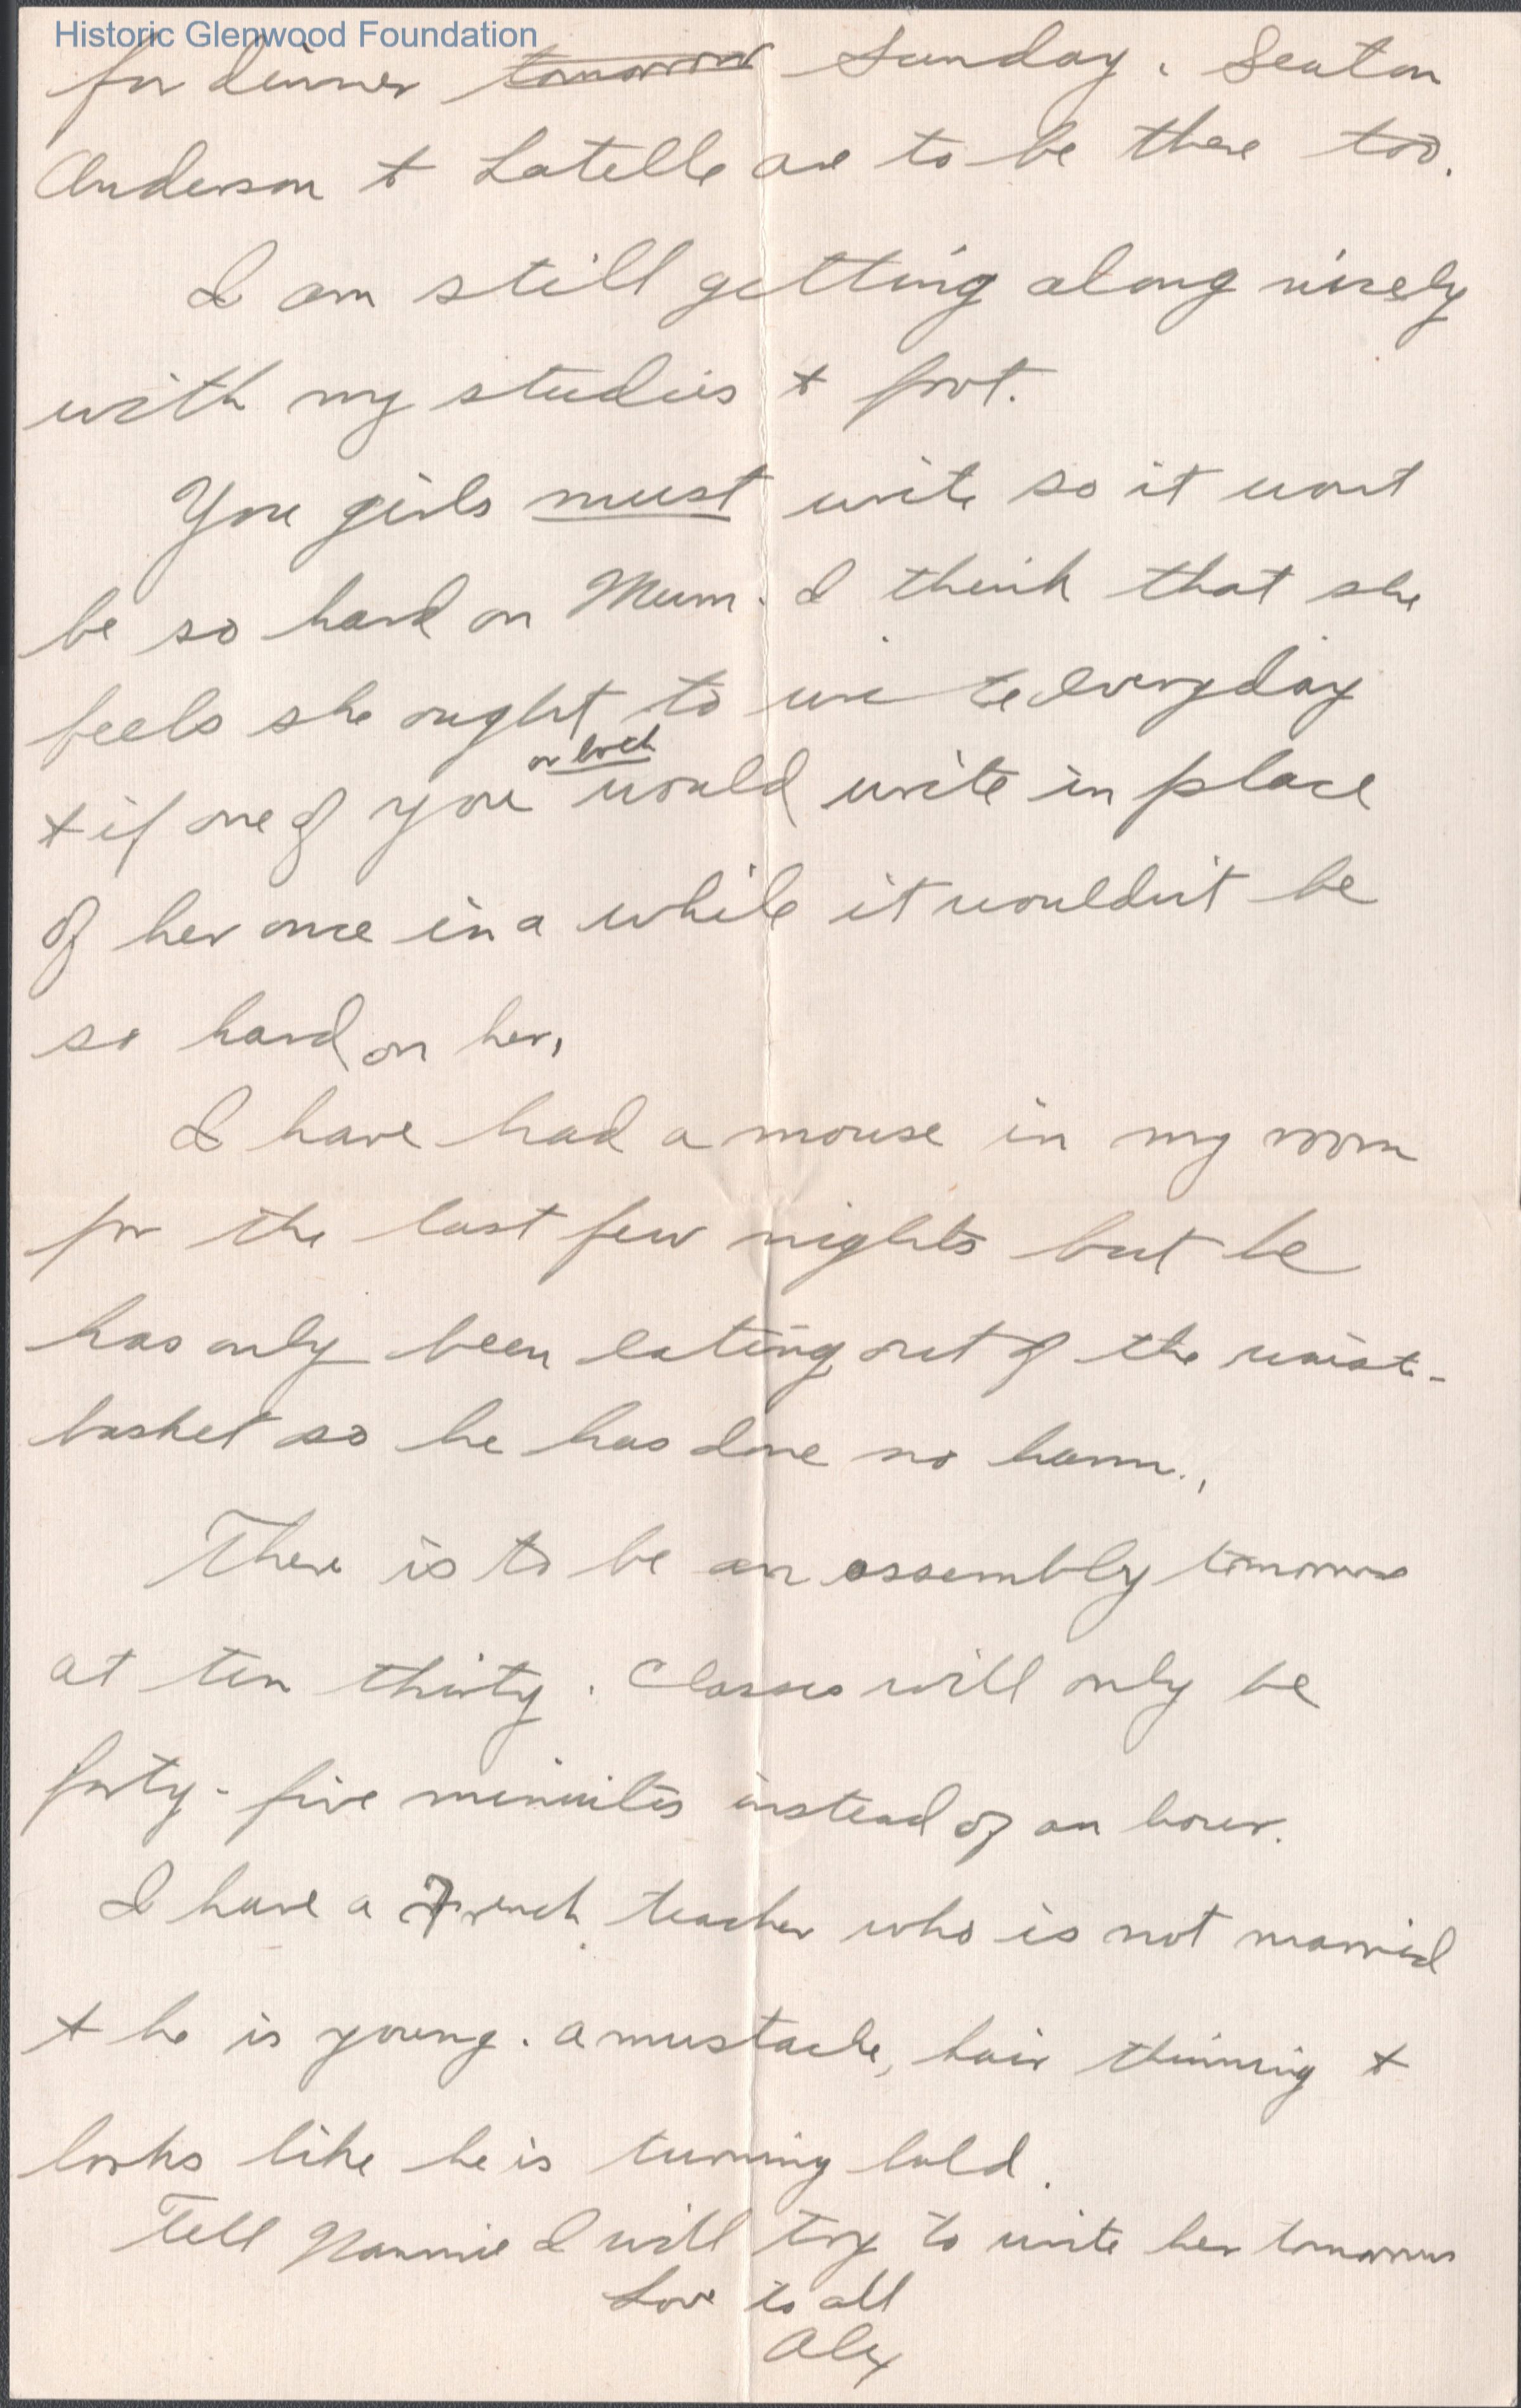 Historic Glenwood Foundation
for dinner tomorrow Sunday. Seaton
Anderson + Latelle are to be there too.
I am still getting along nicely
with my studies + foot.
You girls must write so it wont
be so hard on Mum. I think that she
feels she ought to write everyday
or both
+ if one of you would write in place
of her once in a while it wouldn't be
so hard on her,
I have had a mouse in my room
for the last few nights but he
has only been eating out of the waist-
basket so he has done no harm.,
There is to be an assembly tomorrow
at ten thirty. Classes will only be
forty-five miniutes instead of an hour.
I have a French teacher who is not married
+ he is young. a mustache, hair thinning +
looks like he is turning bald.
Tell Nannie I will try to write her tomorrow
Love to all
Alex